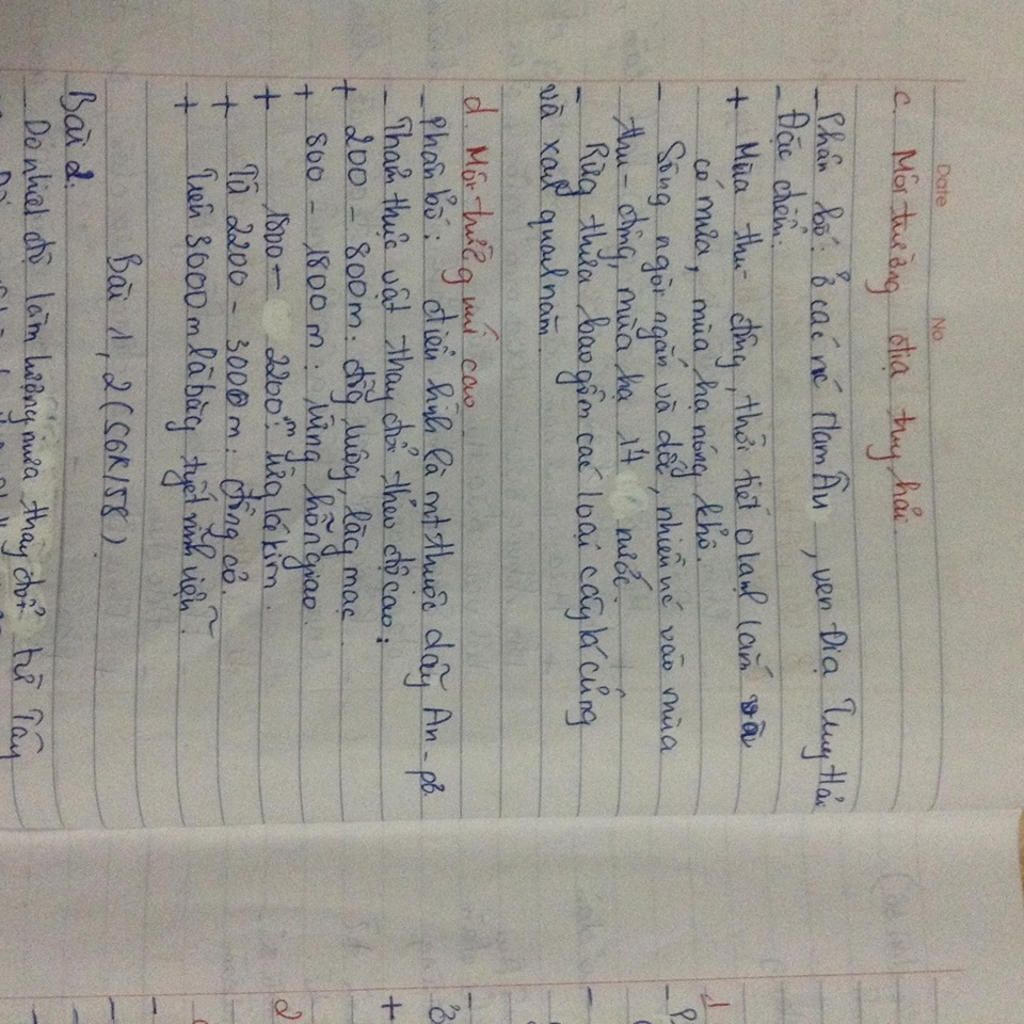 Date No
c. Môi trường địa trung hải.
- Phân bố: ở các nc Nam Âu, ven Địa Trung Hải
- Đặc điểm:
+ Mùa thu - đông, thời tiết o lạnh lắm và
có mưa, mùa hạ nóng khô.
- Sông ngòi ngắn và dốc, nhiều nc vào mùa
thu - đông, mùa hạ ít nước.
- Rừng thưa bao gồm các loại cây lá cứng
và xanh quanh năm.
d. Môi trường núi cao
- Phân bố: điển hình là mt thuộc dãy An-pơ
- Thảm thực vật thay đổi theo độ cao:
+ 200 - 800m: đồng ruộng, làng mạc
+ 800 - 1800m: rừng hỗn giao.
+ 1800 - 2200m: rừng lá kim.
+ Từ 2200 - 3000m: đồng cỏ.
+ Trên 3000m là băng tuyết vĩnh viễn.
Bài 1, 2 (SGK/158)
Bài 2:
Do nhiệt độ làm lượng mưa thay đổi từ Tây